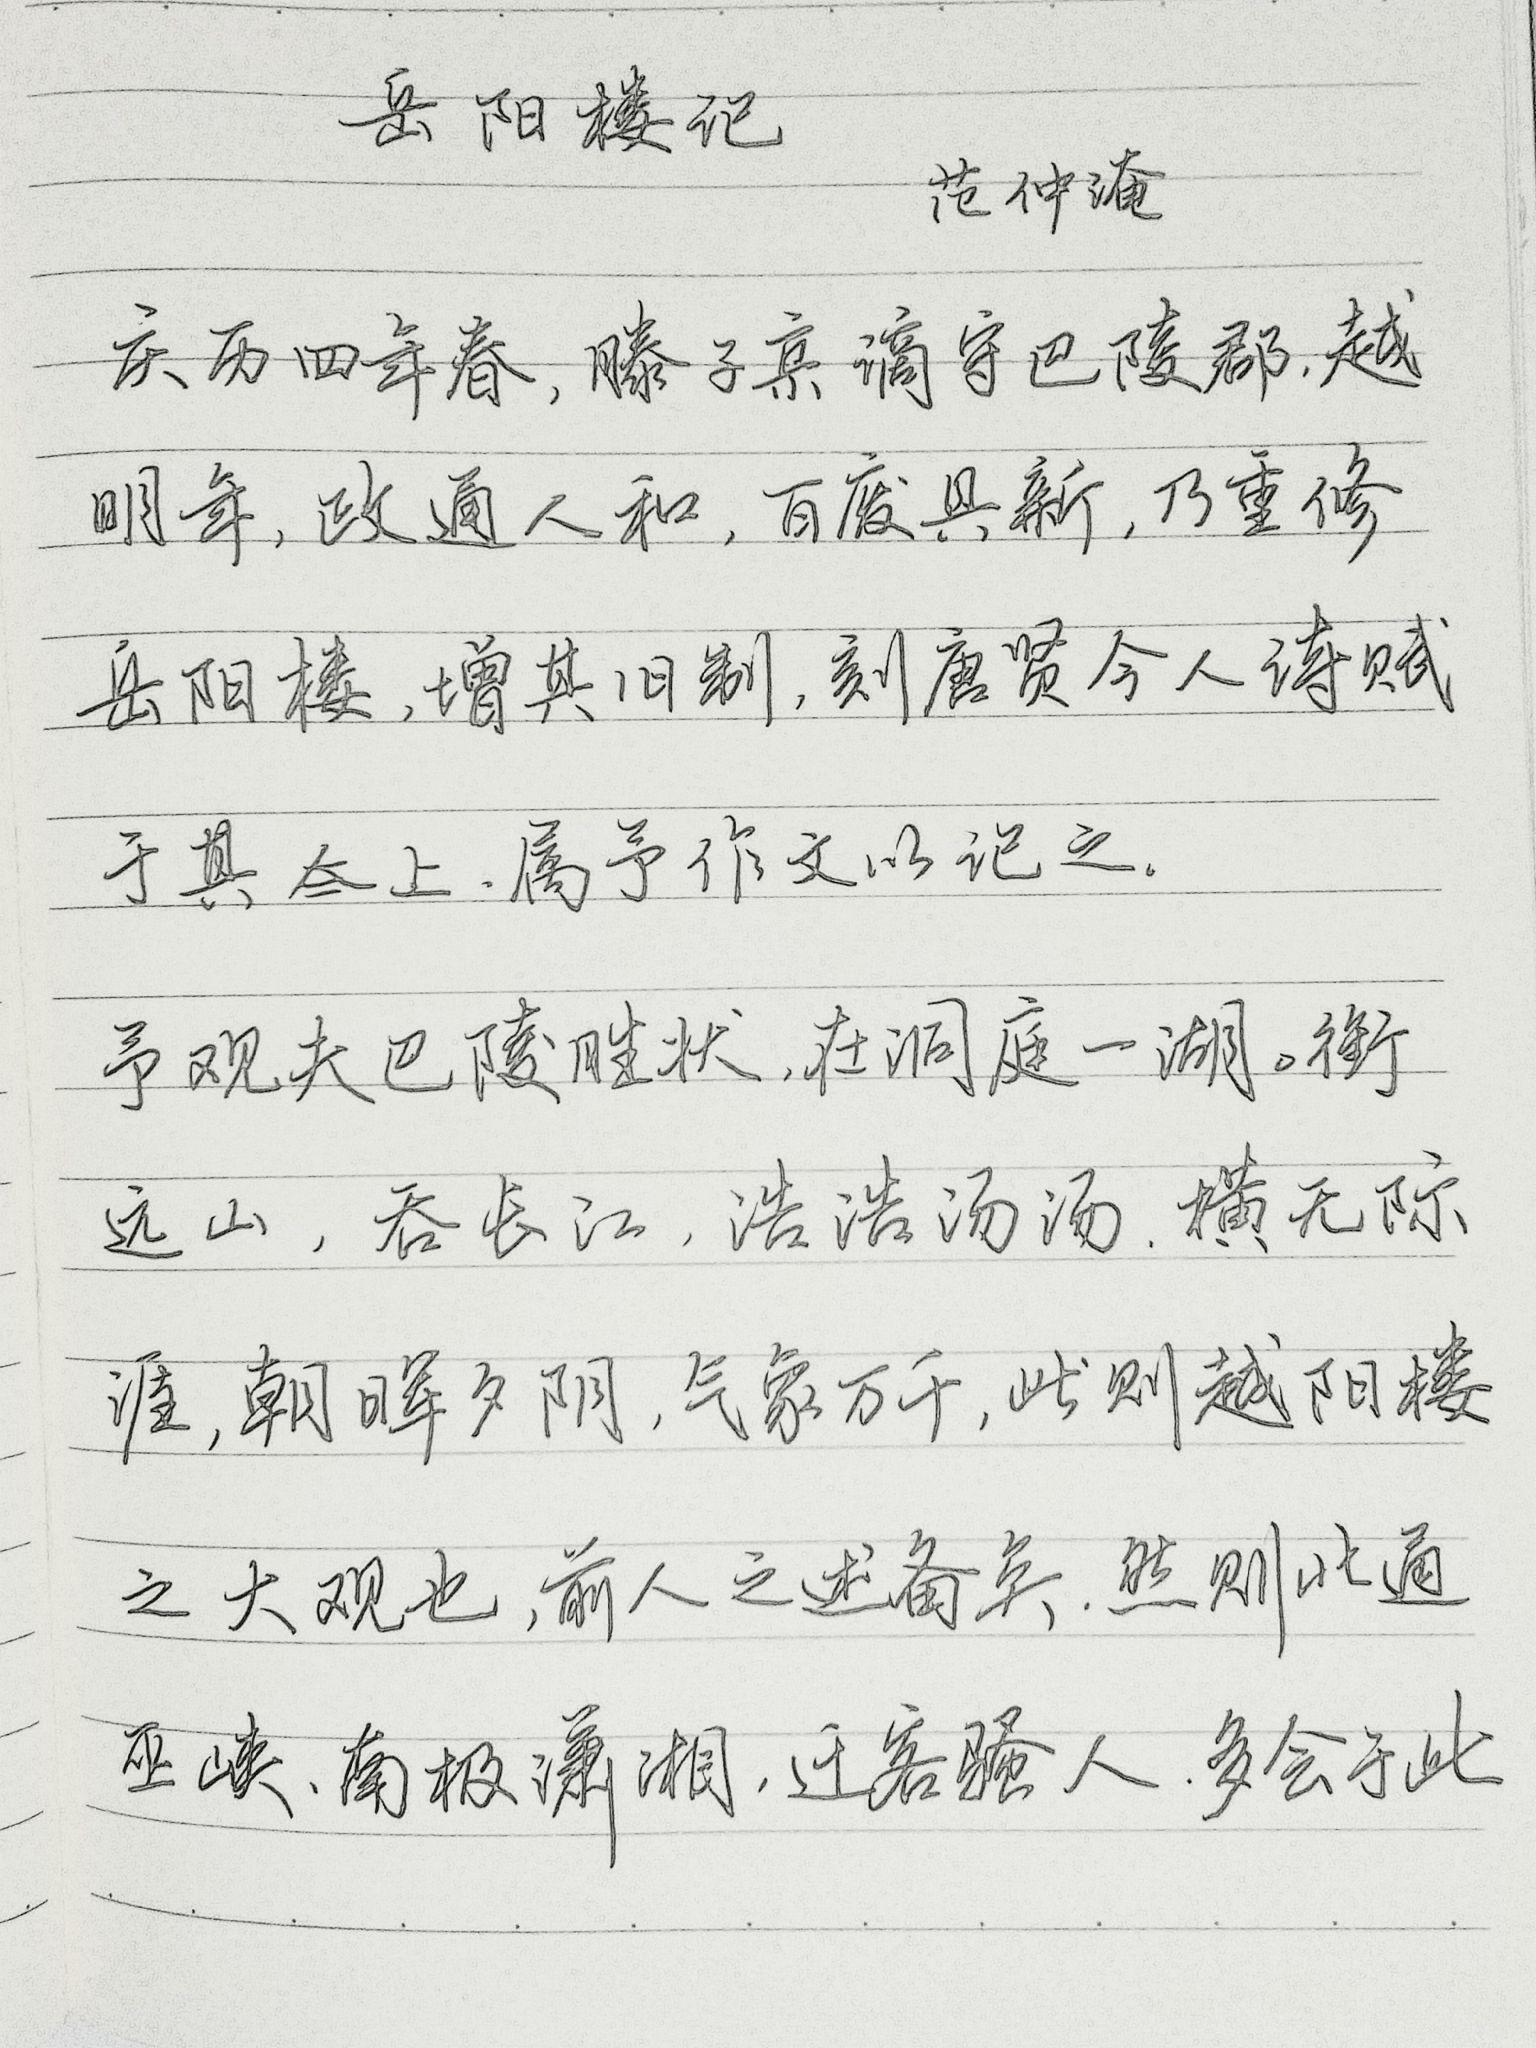 岳阳楼记
范仲淹
庆历四年春,滕子京谪守巴陵郡.越
明年,政通人和,百废具新,乃重修
岳阳楼,增其旧制,刻唐贤今人诗赋
于其上.属予作文以记之。
予观夫巴陵胜状,在洞庭一湖。衔
远山,吞长江,浩浩汤汤.横无际
涯,朝晖夕阴,气象万千,此则越阳楼
之大观也,前人之述备矣.然则北通
巫峡、南极潇湘,迁客骚人.多会于此